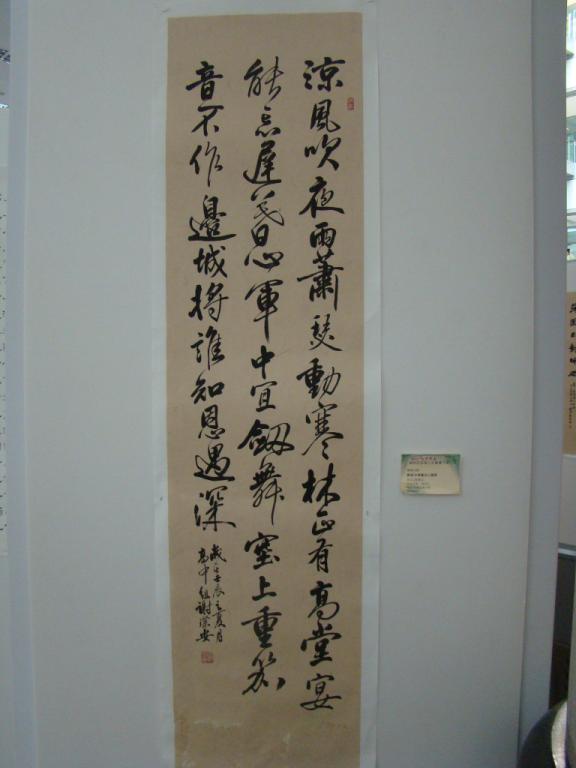 涼風吹夜雨蕭瑟動寒林正有高堂宴
能忘遲暮心軍中宜劍舞塞上重笳
音不作邊城將誰知恩遇深
歲壬辰之夏月
高中組謝安